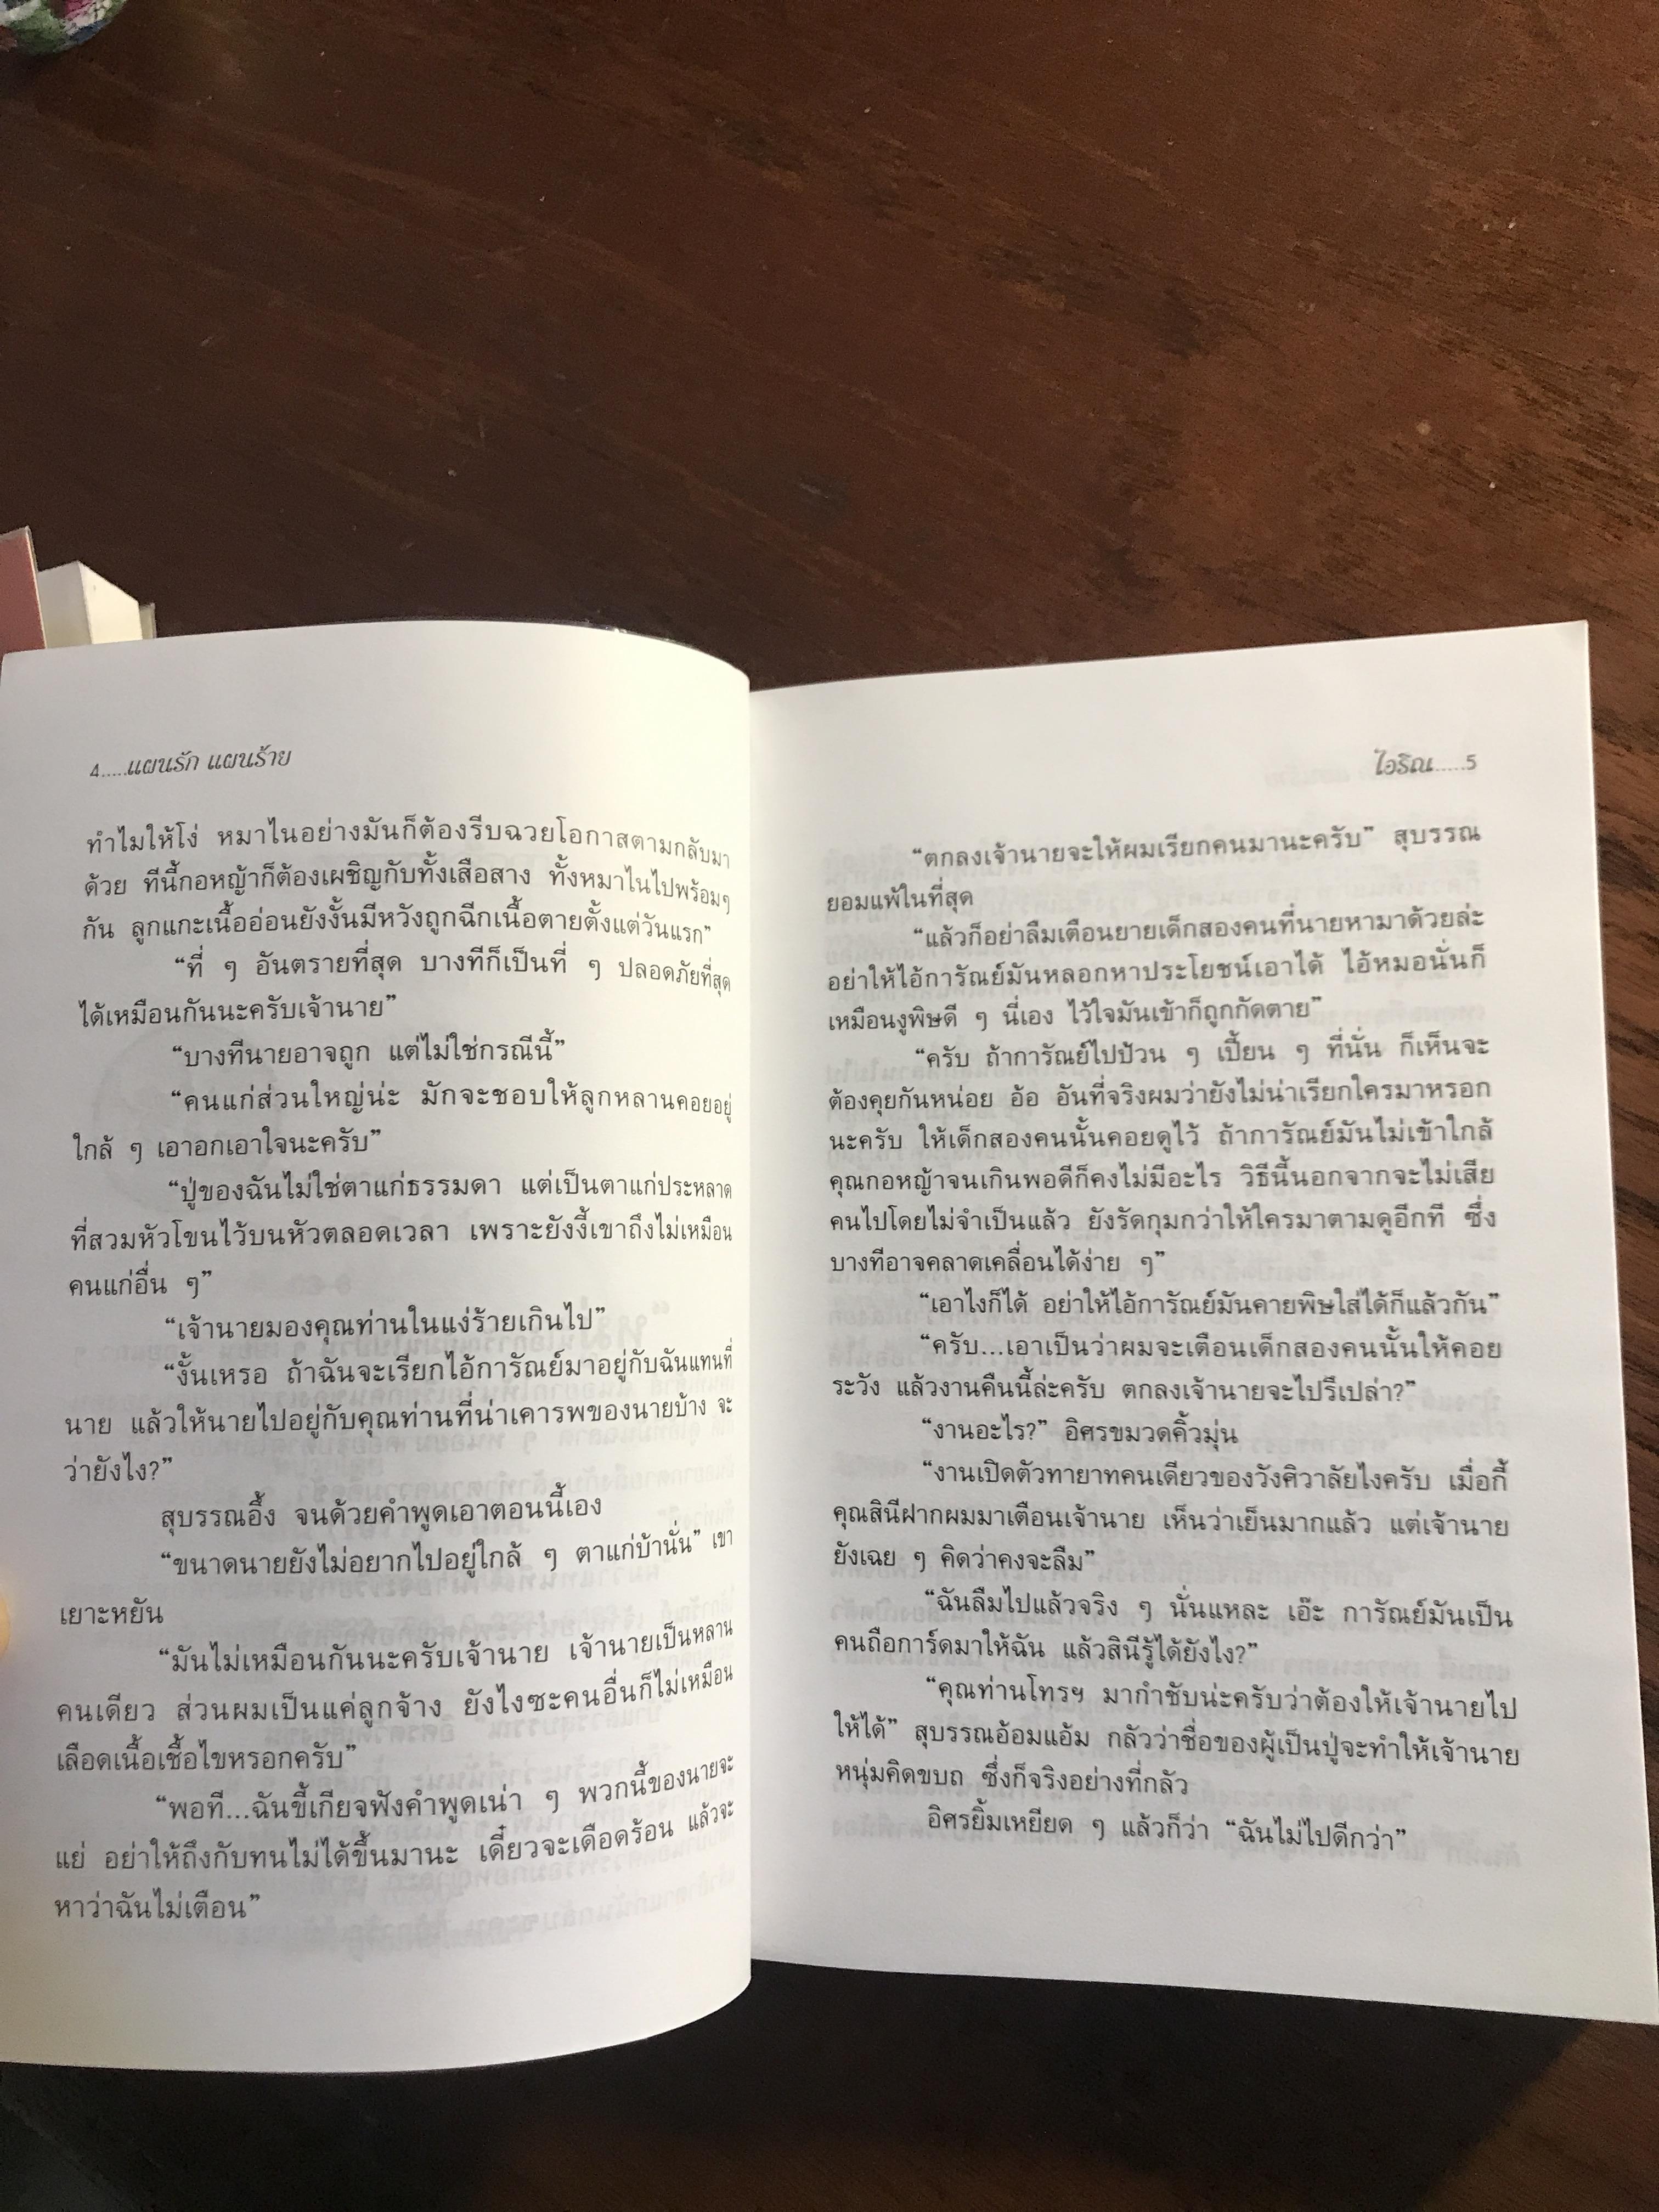 4.....แผนรัก แผนร้าย
ทำไมให้โง่ หมาไนอย่างมันก็ต้องรีบฉวยโอกาสตามกลับมา
ด้วย ทีนี้กอหญ้าก็ต้องเผชิญกับทั้งเสือสาง ทั้งหมาไนไปพร้อมๆ
กัน ลูกแกะเนื้ออ่อนยังงั้นมีหวังถูกฉีกเนื้อตายตั้งแต่วันแรก”
“ที่ ๆ อันตรายที่สุด บางทีก็เป็นที่ ๆ ปลอดภัยที่สุด
ได้เหมือนกันนะครับเจ้านาย”
“บางทีนายอาจถูก แต่ไม่ใช่กรณีนี้”
“คนแก่ส่วนใหญ่น่ะ มักจะชอบให้ลูกหลานคอยอยู่
ใกล้ ๆ เอาอกเอาใจนะครับ”
“ปู่ของฉันไม่ใช่ตาแก่ธรรมดา แต่เป็นตาแก่ประหลาด
ที่สวมหัวโขนไว้บนหัวตลอดเวลา เพราะยังงี้เขาถึงไม่เหมือน
คนแก่อื่น ๆ”
“เจ้านายมองคุณท่านในแง่ร้ายเกินไป”
“งั้นเหรอ ถ้าฉันจะเรียกไอ้การัณย์มาอยู่กับฉันแทนที่
นาย แล้วให้นายไปอยู่กับคุณท่านที่น่าเคารพของนายบ้าง จะ
ว่ายังไง?”
สุบรรณอึ้ง จนด้วยคำพูดเอาตอนนี้เอง
“ขนาดนายยังไม่อยากไปอยู่ใกล้ ๆ ตาแก่บ้านั่น” เขา
เยาะหยัน
“มันไม่เหมือนกันนะครับเจ้านาย เจ้านายเป็นหลาน
คนเดียว ส่วนผมเป็นแค่ลูกจ้าง ยังไงซะคนอื่นก็ไม่เหมือน
เลือดเนื้อเชื้อไขหรอกครับ”
“พอที...ฉันขี้เกียจฟังคำพูดเน่า ๆ พวกนี้ของนายจะ
แย่ อย่าให้ถึงกับทนไม่ได้ขึ้นมานะ เดี๋ยวจะเดือดร้อน แล้วจะ
หาว่าฉันไม่เตือน”
ไอริณ.....5
“ตกลงเจ้านายจะให้ผมเรียกคนมานะครับ” สุบรรณ
ยอมแพ้ในที่สุด
“แล้วก็อย่าลืมเตือนยายเด็กสองคนที่นายหามาด้วยล่ะ
อย่าให้ไอ้การัณย์มันหลอกหาประโยชน์เอาได้ ไอ้หมอนั่นก็
เหมือนงูพิษดี ๆ นี่เอง ไว้ใจมันเข้าก็ถูกกัดตาย”
“ครับ ถ้าการัณย์ไปป้วน ๆ เปี้ยน ๆ ที่นั่น ก็เห็นจะ
ต้องคุยกันหน่อย อ้อ อันที่จริงผมว่ายังไม่น่าเรียกใครมาหรอก
นะครับ ให้เด็กสองคนนั้นคอยดูไว้ ถ้าการัณย์มันไม่เข้าใกล้
คุณกอหญ้าจนเกินพอดีก็คงไม่มีอะไร วิธีนี้นอกจากจะไม่เสีย
คนไปโดยไม่จำเป็นแล้ว ยังรัดกุมกว่าให้ใครมาตามดูอีกที ซึ่ง
บางทีอาจคลาดเคลื่อนได้ง่าย ๆ”
“เอาไงก็ได้ อย่าให้ไอ้การัณย์มันคายพิษใส่ได้ก็แล้วกัน”
“ครับ...เอาเป็นว่าผมจะเตือนเด็กสองคนนั้นให้คอย
ระวัง แล้วงานคืนนี้ล่ะครับ ตกลงเจ้านายจะไปรึเปล่า?”
“งานอะไร?” อิศรขมวดคิ้วมุ่น
“งานเปิดตัวทายาทคนเดียวของวังศิวาลัยไงครับ เมื่อกี้
คุณสินีฝากผมมาเตือนเจ้านาย เห็นว่าเย็นมากแล้ว แต่เจ้านาย
ยังเฉย ๆ คิดว่าคงจะลืม”
“ฉันลืมไปแล้วจริง ๆ นั่นแหละ เอ๊ะ การัณย์มันเป็น
คนถือการ์ดมาให้ฉัน แล้วสินีรู้ได้ยังไง?”
“คุณท่านโทรฯ มากำชับน่ะครับว่าต้องให้เจ้านายไป
ให้ได้” สุบรรณอ้อมแอ้ม กลัวว่าชื่อของผู้เป็นปู่จะทำให้เจ้านาย
หนุ่มคิดขบถ ซึ่งก็จริงอย่างที่กลัว
อิศรยิ้มเหยียด ๆ แล้วก็ว่า “ฉันไม่ไปดีกว่า”